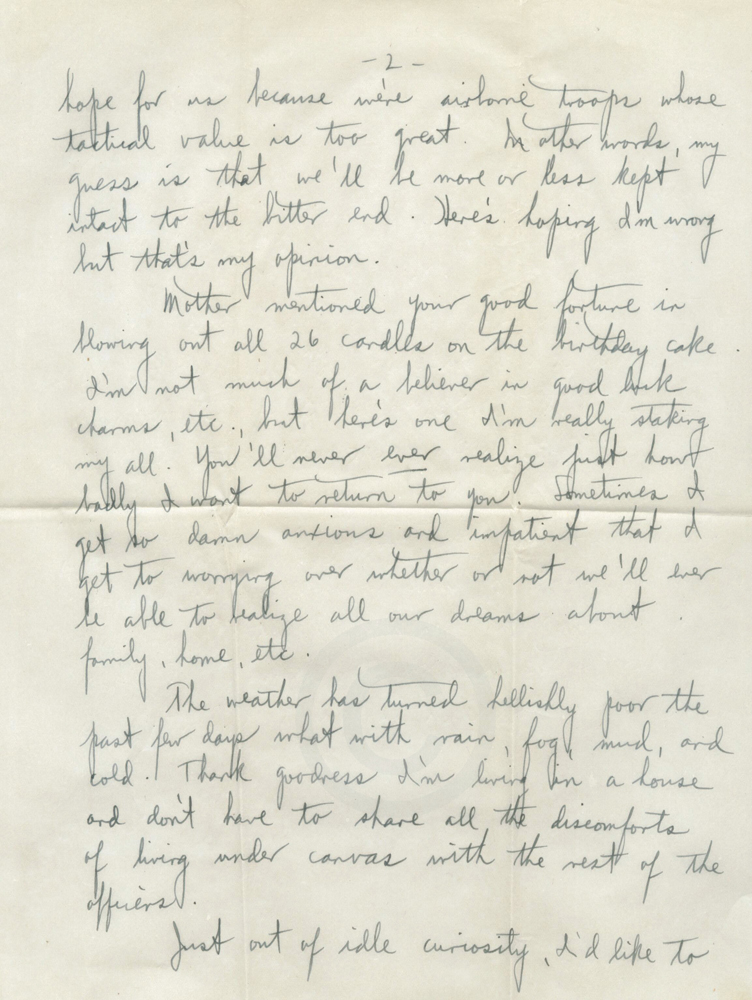 -2-
hope for us because we're airborne troops whose
tactical value is too great. In other words, my
guess is that we'll be more or less kept
intact to the bitter end. Here's hoping I'm wrong
but that's my opinion.
Mother mentioned your good fortune in
blowing out all 26 candles on the birthday cake.
I'm not much of a believer in good luck
charms, etc., but here's one I'm really staking
my all. You'll never ever realize just how
badly I want to return to you. Sometimes I
get so damn anxious and impatient that I
get to worrying over whether or not we'll ever
be able to realize all our dreams about
family, home, etc.
The weather has turned hellishly poor the
past few days what with rain, fog, mud, and
cold. Thank goodness I'm living in a house
and don't have to share all the discomforts
of living under canvas with the rest of the
officers.
Just out of idle curiosity, I'd like to